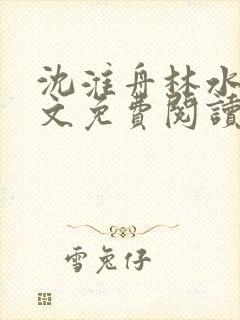 沈淮舟林水
文免費閱讀
雪兔仔